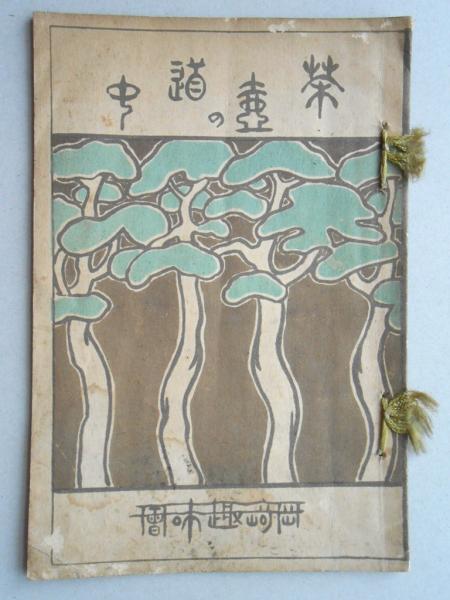 茶壺の道中
岡崎趣味會